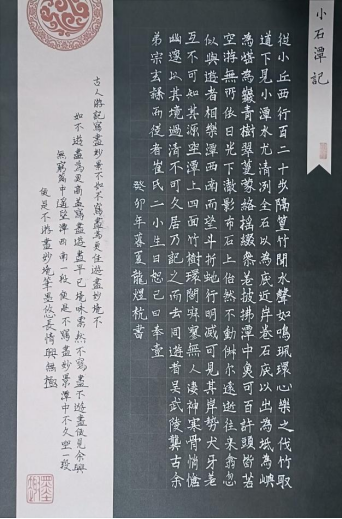 小石潭記
從小丘西行百二十步隔篁竹聞水聲如鳴珮環心樂之伐竹取
道下見小潭水尤清冽全石以為底近岸卷石底以出為坻為嶼
為嵁為巖青樹翠蔓蒙絡搖綴參差披拂潭中魚可百許頭皆若
空游無所依日光下澈影布石上佁然不動俶爾遠逝往來翕忽
似與遊者相樂潭西南而望斗折蛇行明滅可見其岸勢犬牙差
互不可知其源坐潭上四面竹樹環合寂寥無人淒神寒骨悄愴
幽邃以其境過清不可久居乃記之而去同遊者吳武陵龔古余
弟宗玄隸而從者崔氏二小生曰恕己曰奉壹
癸卯年春夏龍煜杭書
古人游記寫盡妙景不如不寫盡為更佳遊盡妙境不
如不遊盡為更高蓋寫盡遊盡早已境味索然不寫盡不遊盡便見余興
無窮篇中遙望潭西南一段便是不寫盡妙景潭中不久坐一段
便是不游盡妙境筆墨悠長情興無極